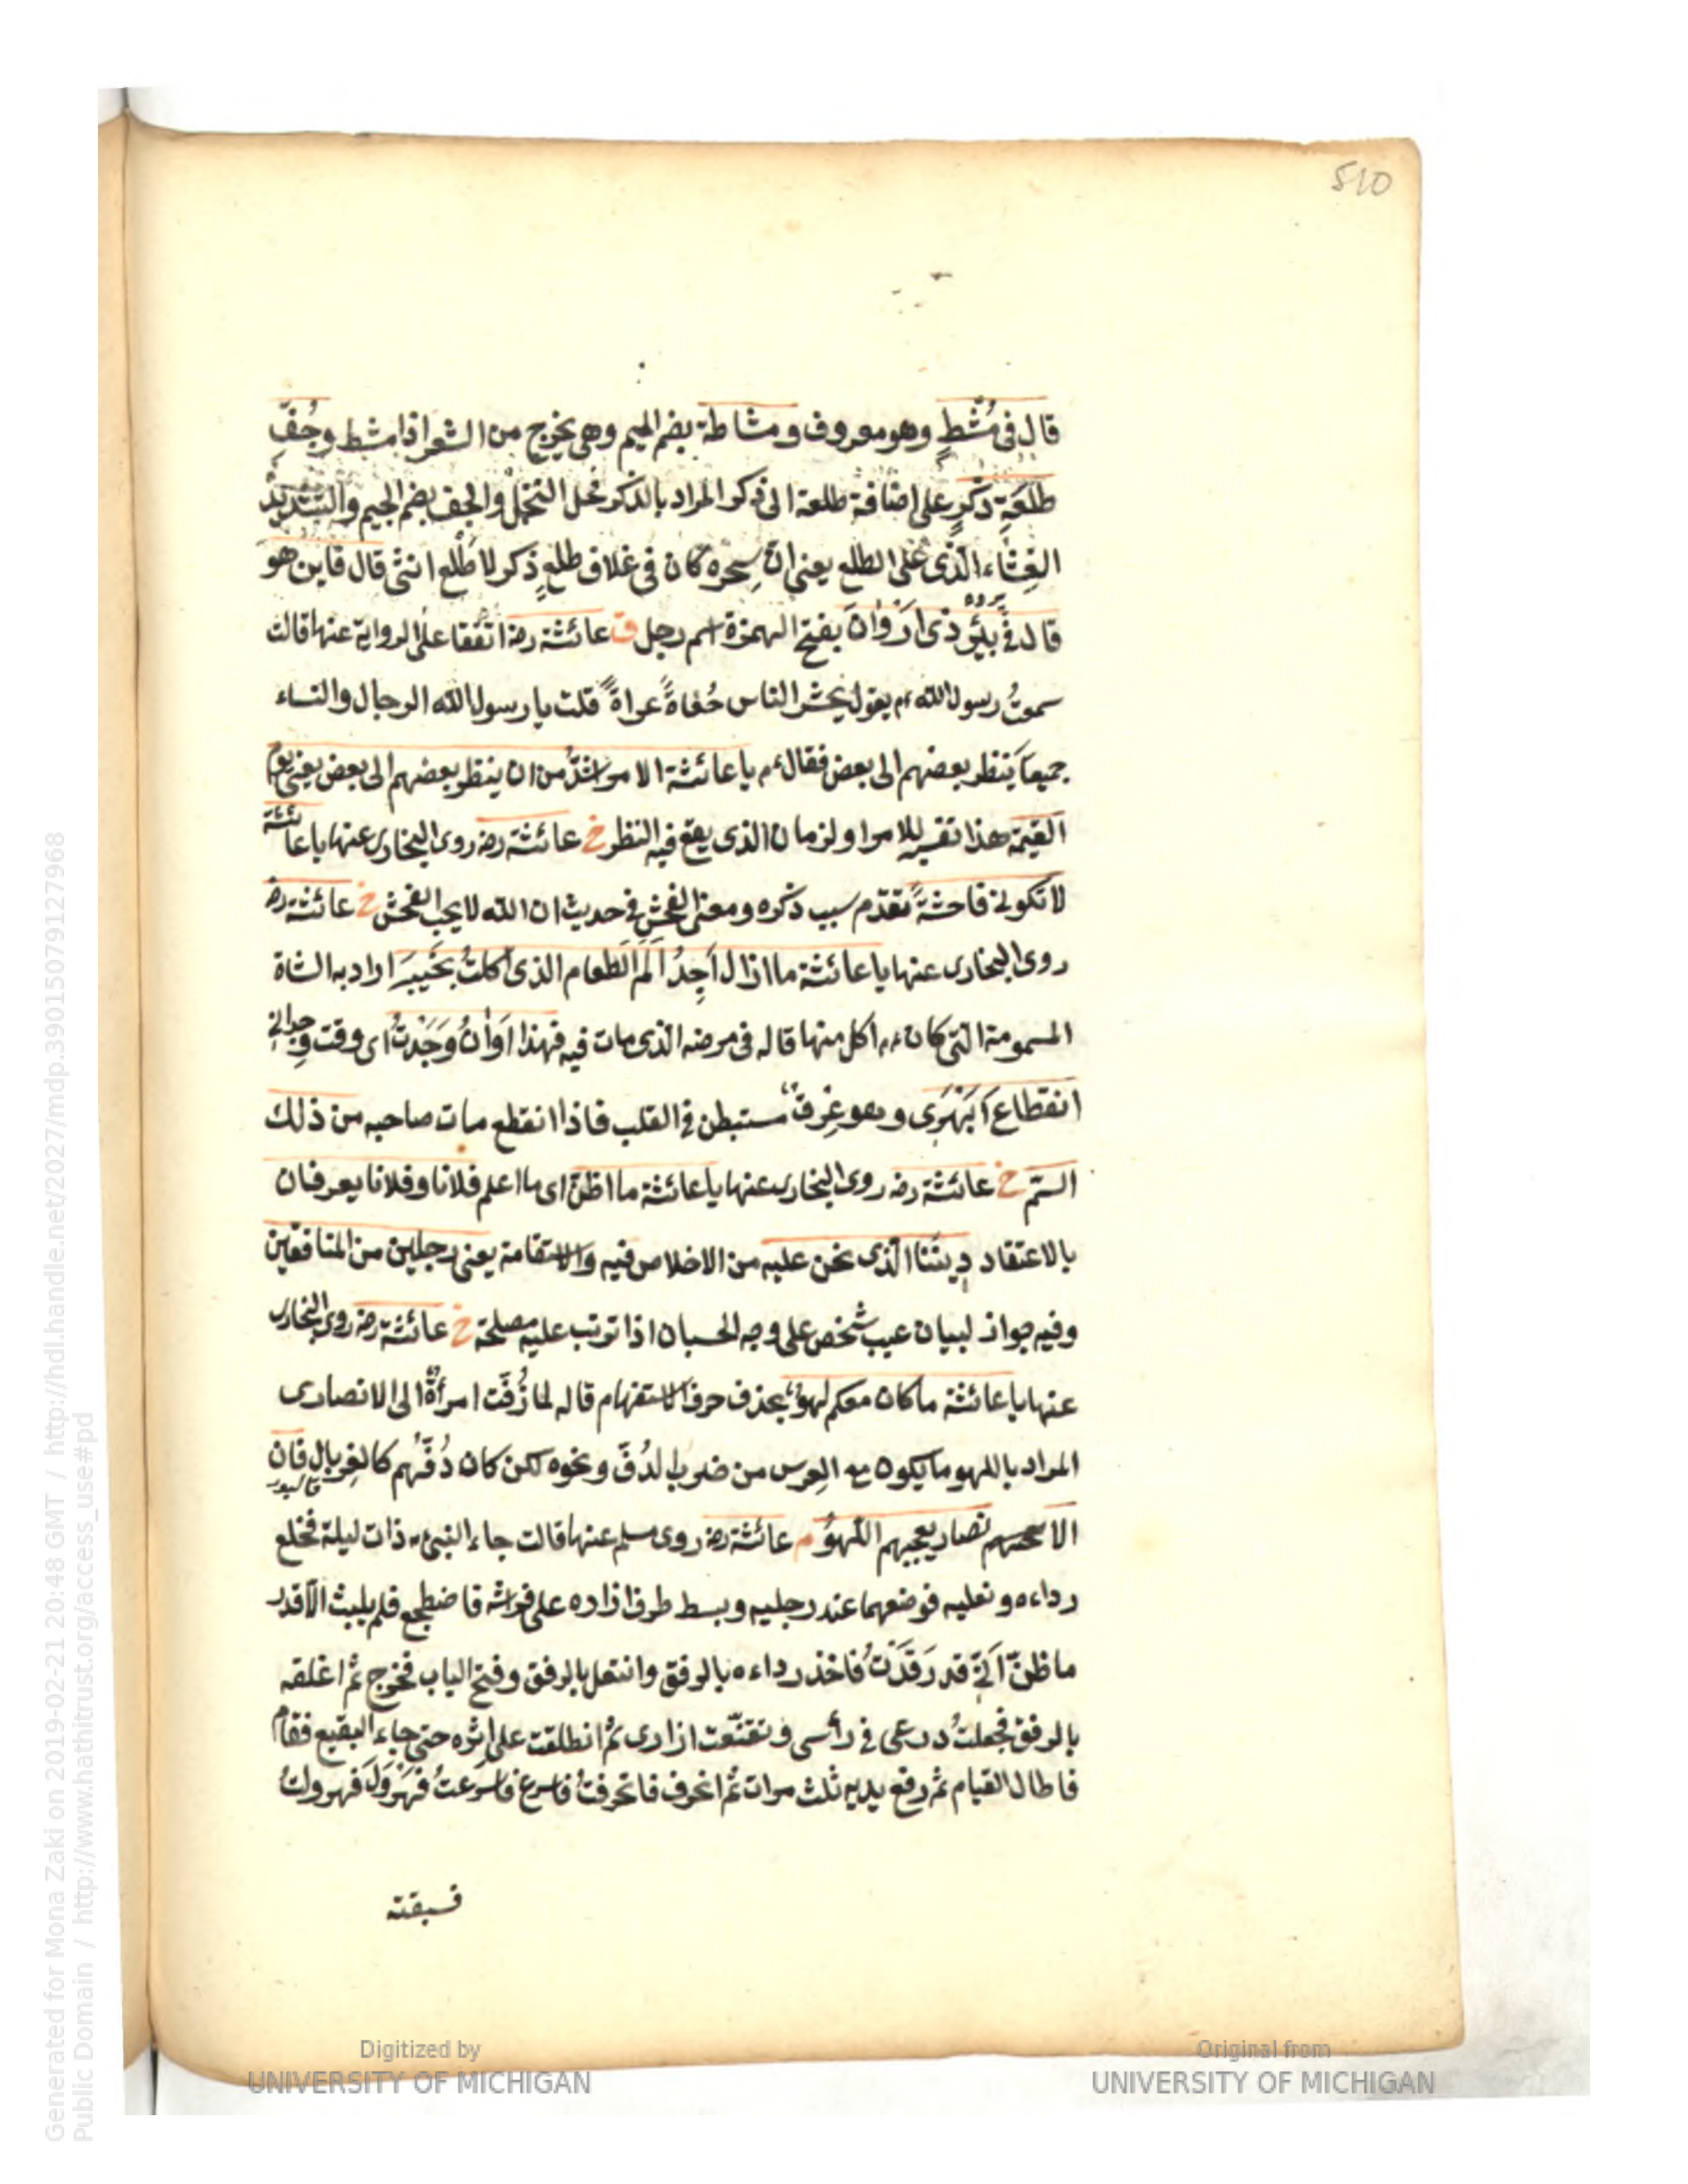 510
قال فى مُشْطٍ وهو معروف ومشاطة بضم الميم وهى يخرج من الشعر اذا مشط وجُفِّ
طلعَةِ ذَكَرٍ على اضافة طلعة الى ذكر المراد بالذكر نحل النخل والجف بضم الجيم والتشديد
الغِشَاء الّذى على الطلع يعنى انّ سِحره كان فى غلاف طلعٍ ذكر لا طلع انثى قال فاين هو
قال فى بئر ذى اَرْوَانَ بفتح الهمزة اسم رجل ق عائشة رضه اتفقا على الرواية عنها قالت
سمعتُ رسول الله ءم يقول يحشر الناس حُفاةً عراةً قلت يا رسول الله الرجال والنساء
جميعًا يَنظر بعضهم الى بعض فقال ءم يا عائشة الامر اشدُّ من ان ينظر بعضهم الى بعض يعنى يوم
القيمة هذا تفسير للامر او لزمان الذى يقع فيه النظر خ عائشة رضه روى البخارى عنها يا عائشة
لا تكونى فاحشةً تقدّم سبب ذكره ومعنى الفحش فى حديث ان الله لا يحب الفحش خ عائشة رضه
روى البخارى عنها يا عائشة ما ازال اَجِدُ اَلَمَ الطعام الذى اكلتُ بخَيبرَ اراد به الشاة
المسمومة الّتى كان ءم اكل منها قاله فى مرضه الذى مات فيه فهذا اَوَانُ وَجَدتُ اى وقت وِجدانى
انقطاع اَبْهَرَى وهو عِرقٌ مستبطن فى القلب فاذا انقطع مات صاحبه من ذلك
السّم خ عائشة رضه روى البخارى عنها يا عائشة ما اظنّ اى ما اعلم فلانا وفلانا يعرفان
بالاعتقاد دِينَنا الّذى نحن عليه من الاخلاص فيه والاستقامة يعنى رجلين من المنافقين
وفيه جواز لبيان عيب شخص على وجه الحسبان اذا ترتب عليه مصلحة خ عائشة رضه روى البخارى
عنها يا عائشة ما كان معكم لهوٌ بحذف حرف الاستفهام قاله لمّا زُفَّت امرأةٌ الى الانصارى
المراد باللهو ما يكون مع العِرس من ضرب الدُفّ ونحوه لكن كان دُفّهم كالغربال فان
الانصار يعجبهم اللّهوُ م عائشة رضه روى مسلم عنها قالت جاء النبىّ ءم ذات ليلة فخلع
رداءه ونعليه فوضعهما عند رجليه وبسط طرف ازاره على فراشه فاضطجع فلم يلبث الّا قدر
ما ظنّ اَنّى قد رَقَدْتُ فاخذ رداءه بالرفق وانتعل بالرفق وفتح الباب فخرج ثم اغلقه
بالرفق فجعلتُ درعى فى رأسى وتقنّعت ازارى ثم انطلقت على اِثره حتى جاء البقيع فقام
فاطال القيام ثم رفع يديه ثلث مرات ثم انحرف فانحرفتُ فاسرع فاسرعتُ فهَرْوَلَ فهرولتُ
فسبقته
Generated for Mona Zaki on 2019-02-21 20:48 GMT / http://hdl.handle.net/2027/mdp.39015079127968
Public Domain / http://www.hathitrust.org/access_use#pd
Digitized by
UNIVERSITY OF MICHIGAN
Original from
UNIVERSITY OF MICHIGAN